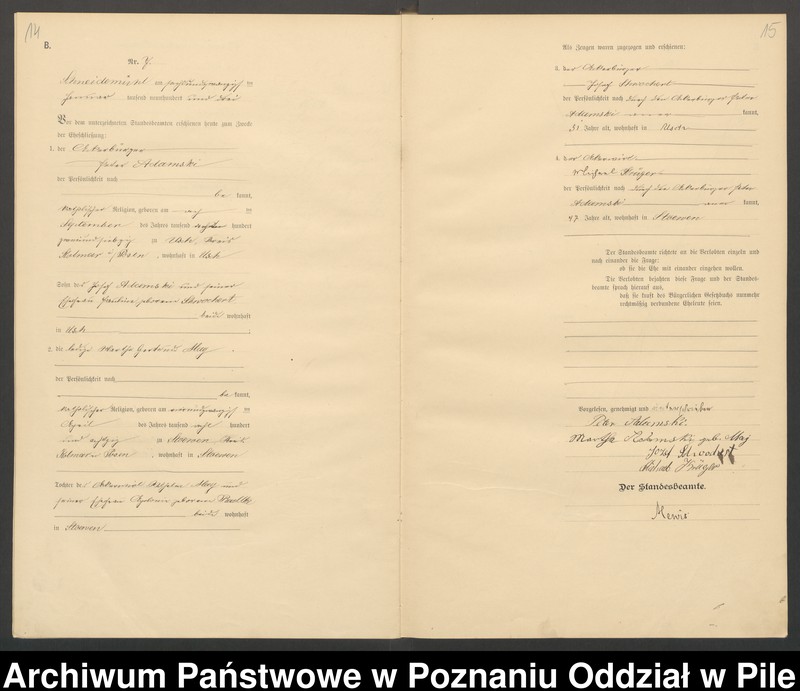 14
B.
Nr. 7.
Schneidemühl am sechsundzwanzigsten
Januar tausend neunhundert und drei
Vor dem unterzeichneten Standesbeamten erschienen heute zum Zwecke
der Eheschließung:
1. der Ackerbürger
Peter Adamski
der Persönlichkeit nach
be kannt,
katholischer Religion, geboren am
September des Jahres tausend acht hundert
zu Usch, Kreis
Kolmar i/Posen, wohnhaft in Usch
Sohn des Josef Adamski und seiner
Ehefrau Pauline geborenen
beide wohnhaft
in Usch
2. die ledige Martha Gertrud May
der Persönlichkeit nach
be kannt,
katholischer Religion, geboren am
April des Jahres tausend acht hundert
und achtzig zu Stoewen, Kreis
Kolmar i. Posen, wohnhaft in Stoewen
Tochter des Ackerwirt May und
seiner Ehefrau geborenen
beide wohnhaft
in Stoewen
15
Als Zeugen waren zugezogen und erschienen:
3. der Ackerbürger
Josef
der Persönlichkeit nach durch den Ackerbürger Peter
Adamski kannt,
51 Jahre alt, wohnhaft in Usch
4. der Ackerwirt
Michael Krüger
der Persönlichkeit nach durch den Ackerbürger Peter
Adamski kannt,
47 Jahre alt, wohnhaft in Stoewen
Der Standesbeamte richtete an die Verlobten einzeln und
nach einander die Frage:
ob sie die Ehe mit einander eingehen wollen.
Die Verlobten bejahten diese Frage und der Standes-
beamte sprach hierauf aus,
daß sie kraft des Bürgerlichen Gesetzbuchs nunmehr
rechtmäßig verbundene Eheleute seien.
Vorgelesen, genehmigt und unterschrieben
Peter Adamski.
Martha Adamski geb. May
Josef
Krüger
Der Standesbeamte.
Mewis
Archiwum Państwowe w Poznaniu Oddział w Pile